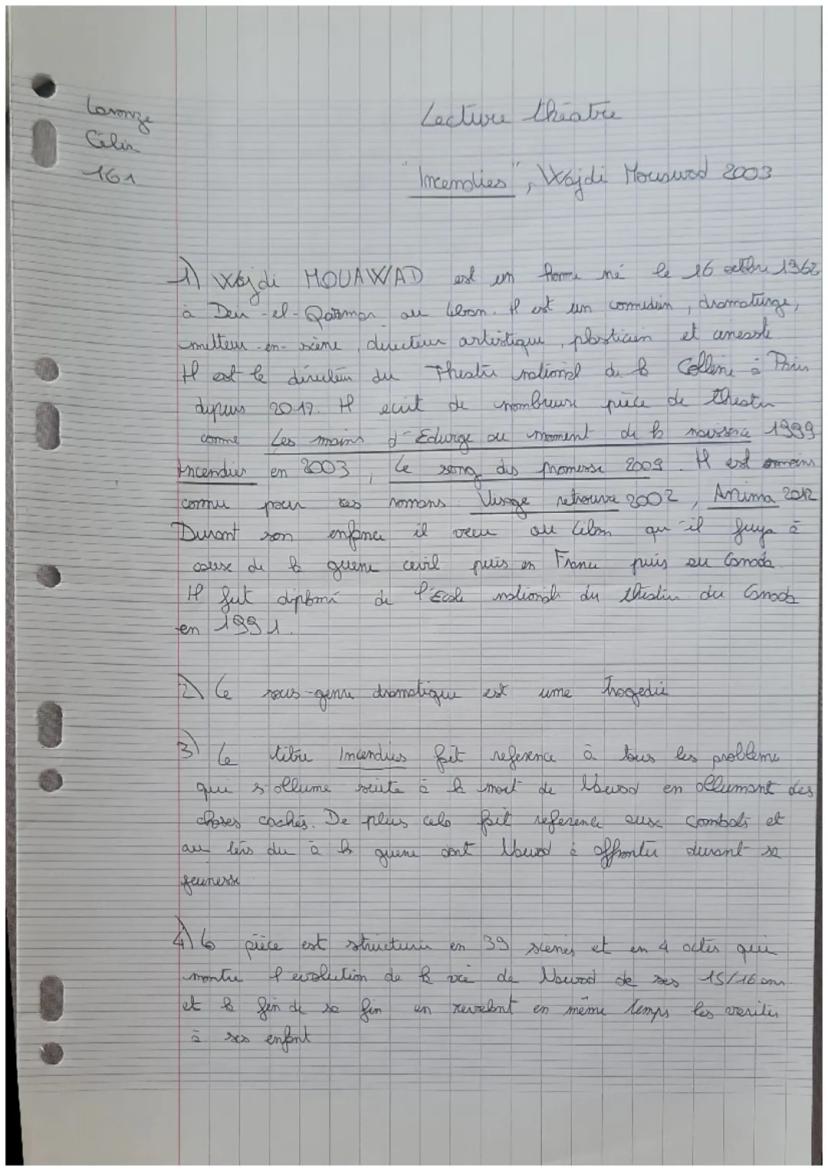 Laronze
Célia
161
Lecture théatre
"Incendies", Wajdi Mouawad 2003
1) Wajdi MOUAWAD est un homme né le 16 octobre 1968
à Deir-el-Qamar au Liban. Il est un comédien, dramaturge,
metteur-en-scène, directeur artistique, plasticien et cinéaste
Il est le directeur du Theatre national de la Colline à Paris
depuis 2017. Il ecrit de nombreuse pièce de theatre
comme Les mains d'Edwige au moment de la naissance 1999
Incendies en 2003, Le sang des promesse 2009. Il est
connu pour ses romans Visage retrouvé 2002, Anima 2012
Durant son enfance il vecu au Liban qu'il fuya à
cause de la guerre civil puis en France puis au Canada
Il fut diplomé de l'Ecole national du théatre du Canada
en 1991.
2) Le sous-genre dramatique est une tragedie
3) Le titre Incendies fait reference à tous les probleme
qui s'allume suite à la mort de Nawad en allumant des
choses cachés. De plus cela fait reference aux combats et
au du à la guerre dont Nawad à affronter durant sa
jeunesse
4) La pièce est structure en 39 scenes et en 4 actes qui
montre l'evolution de la vie de Nawad de ses 15/16 ans
et la fin de sa fin en revelant en même temps les verites
à ses enfant